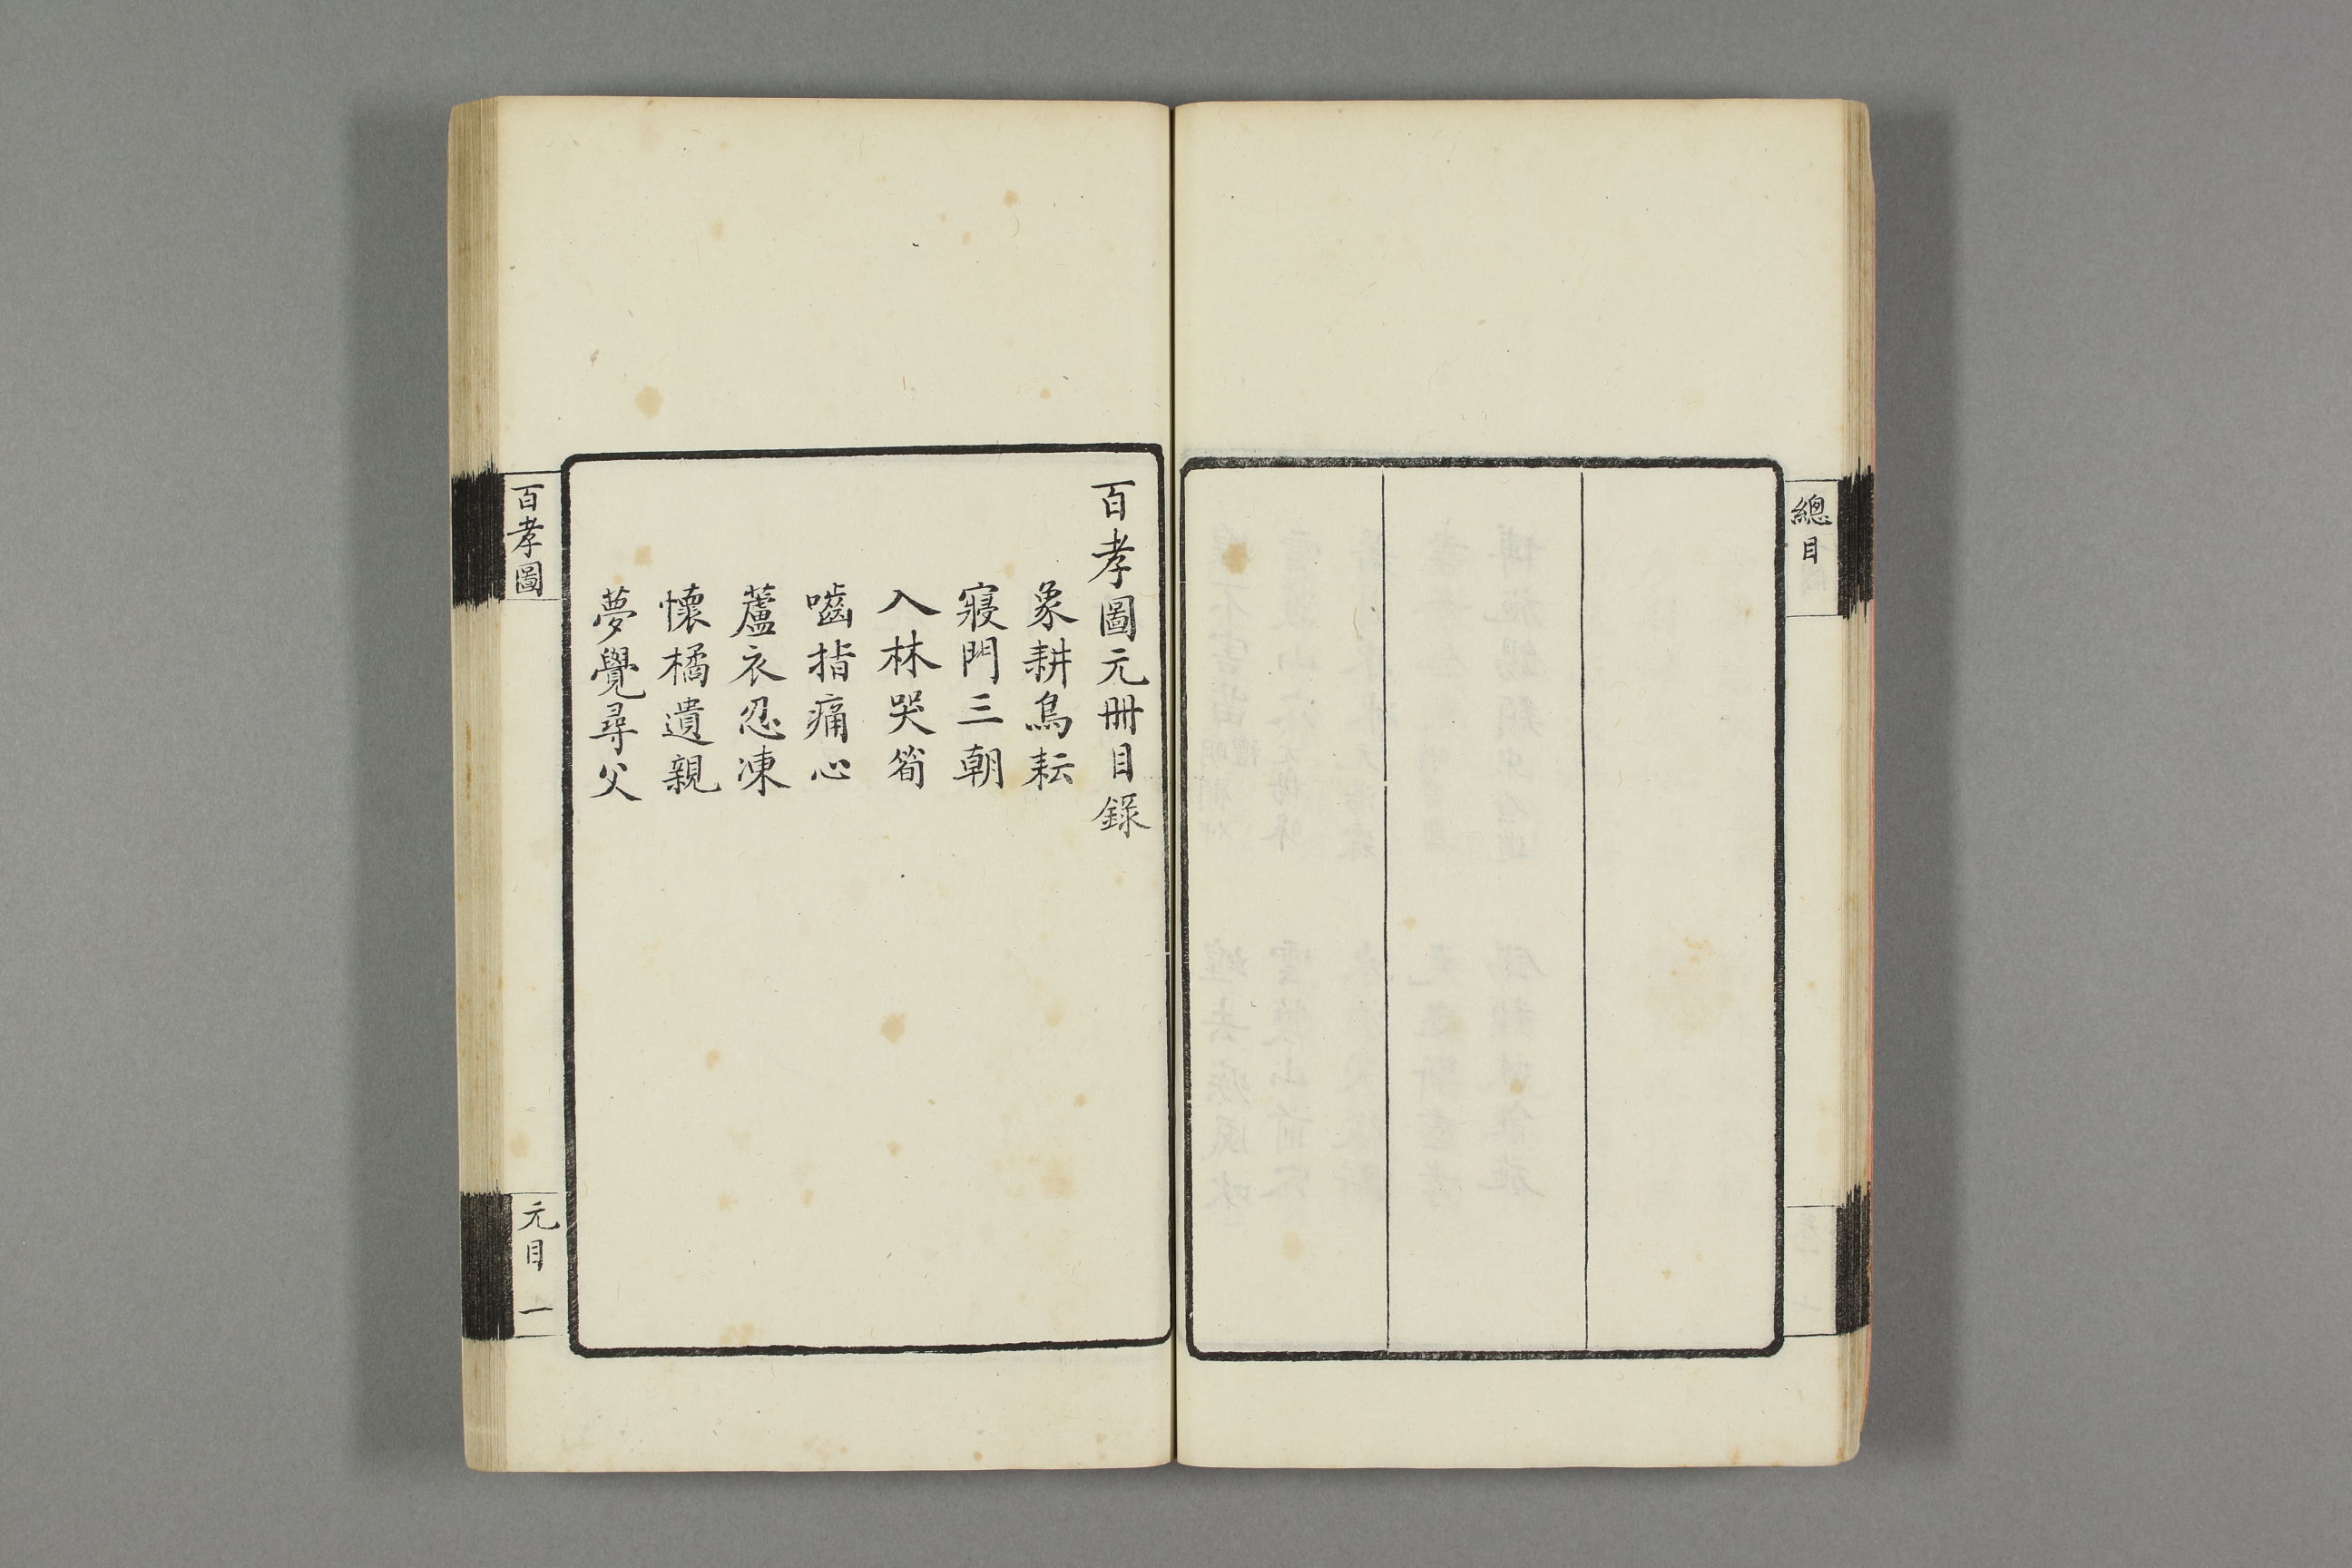 總目
百孝圖元冊目錄
象耕鳥耘
寢門三朝
入林哭筍
嚙指痛心
蘆衣忍凍
懷橘遺親
夢覺尋父
百孝圖
元目
一